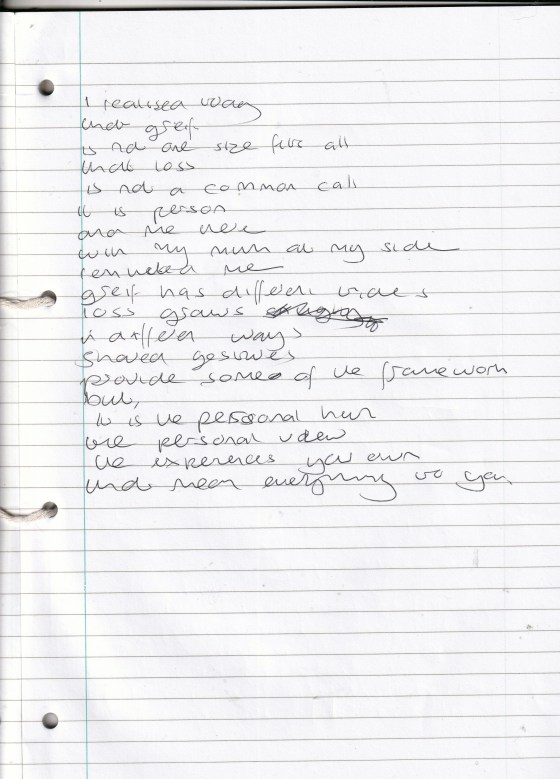 I realised today
that greif
is not one size fits all
that loss
is not a common call
it is person
and me here
with my mum at my side
reminded me
greif has different tides
loss grows
in different ways
shared gestures
provide some of the framework
but,
it is the personal hurt
the personal view
the experences you own
that mean everything to you